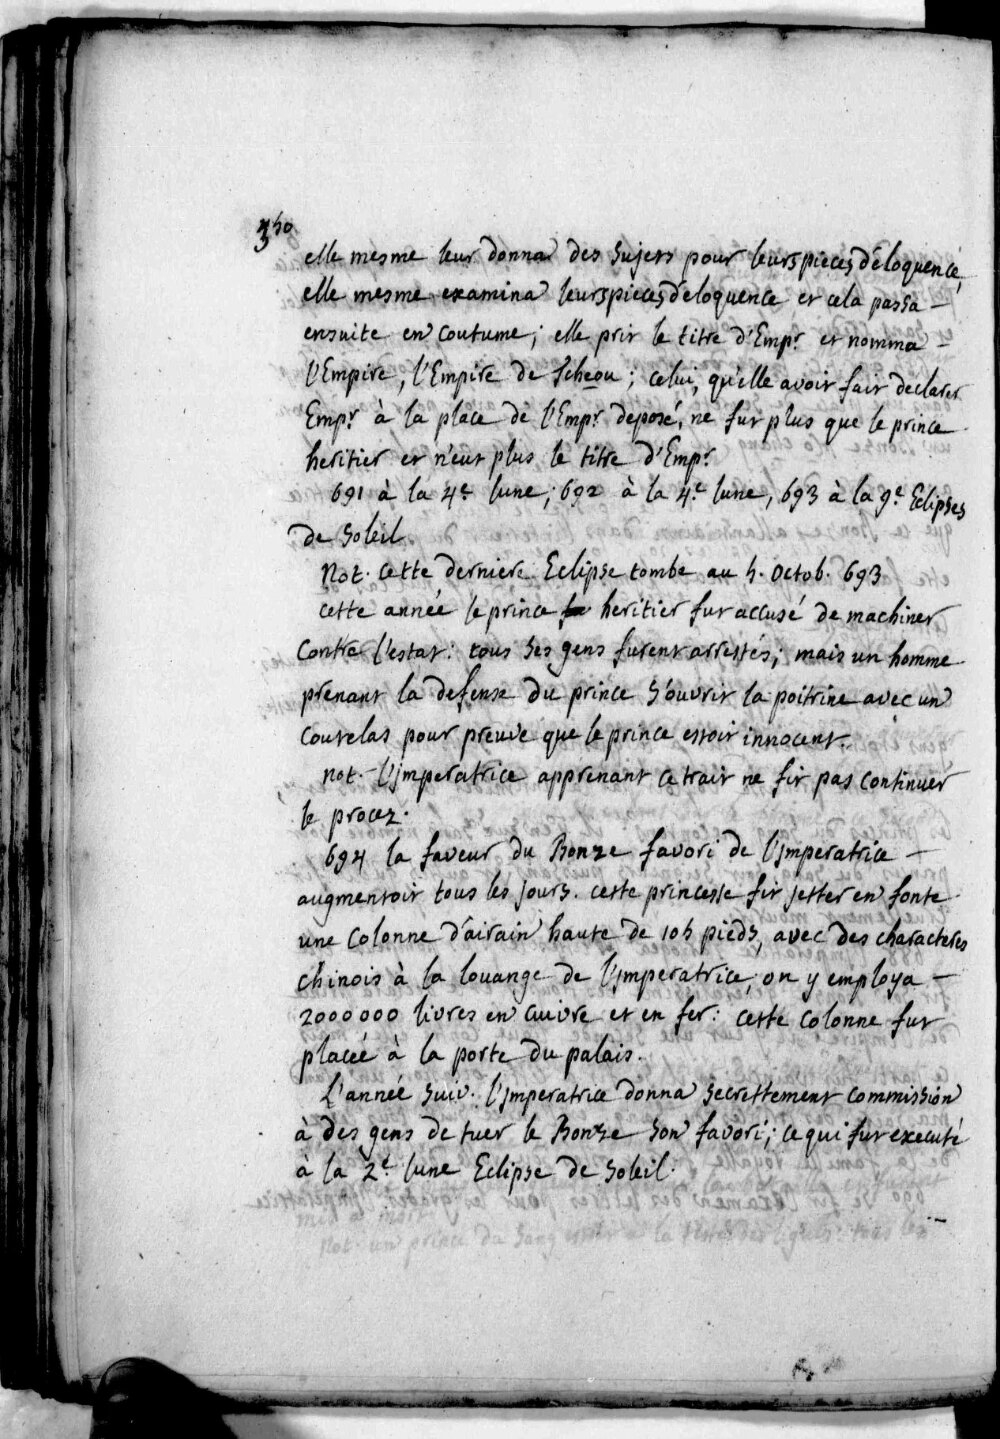 350
elle mesme leur donna des sujets pour leurs pieces d'eloquence,
elle mesme examina leurs pieces d'eloquence et cela passa –
ensuite en coutume; elle prit le titre d'Emp.r et nomma –
l'Empire, l'Empire de Tcheou; celui, qu'elle avoit fait declarer
Emp.r à la place de l'Emp.r deposé, ne fut plus que le prince
heritier et n'eut plus le titre d'Emp.r
691 à la 4.e lune; 692 à la 4.e lune, 693 à la 9.e Eclipses
de Soleil
Not. cette derniere Eclipse tombe au 5. Octob. 693
cette année le prince heritier fut accusé de machiner
contre l'estat: tous ses gens furent arrestés; mais un homme
prenant la defense du prince s'ouvrit la poitrine avec un
coutelas pour preuve que le prince estoit innocent.
not. l'jmperatrice apprenant ce trait ne fit pas continuer
le procez.
694 la faveur du Bonze favori de l'jmperatrice –
augmentoit tous les jours. cette princesse fit jetter en fonte
une colonne d'airain haute de 105 pieds, avec des characteres
chinois à la louange de l'jmperatrice, on y employa –
2000000 livres en cuivre et en fer: cette colonne fut
placée à la porte du palais.
L'année suiv. l'jmperatrice donna secrettement commission
à des gens de tuer le Bonze son favori; ce qui fut executé
à la 2.e lune Eclipse de Soleil.